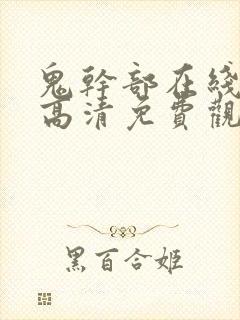 鬼幹部在綫
高清免費觀
黑百合姬